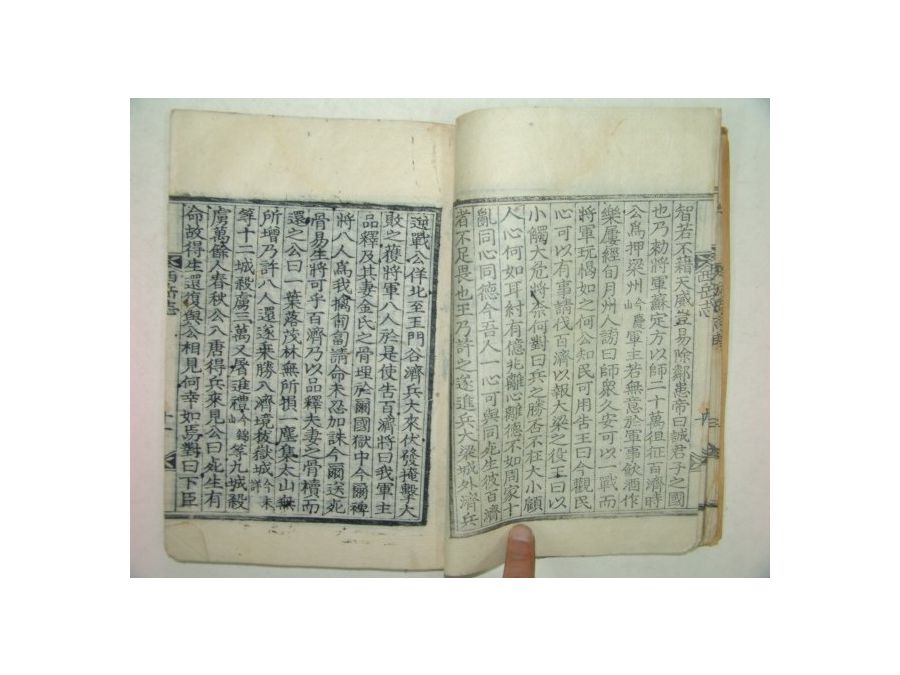 智若不籍天威豈易除鄰患帝曰誠君子之國
也乃勅將軍蘇定方以師二十萬徂征百濟時
公為押梁州今慶山軍主若無意於軍事飲酒作
樂屢經旬月州人謗曰師衆久安可以一戰而
將軍玩惕如之何公知民可用告王曰今觀民
心可以有事請伐百濟以報大梁之役王曰以
小觸大危將奈何對曰兵之勝否不在大小顧
人心何如耳紂有億兆離心離德不如周家十
亂同心同德今吾人一心可與同死生彼百濟
者不足畏也王乃許之遂進兵大梁城外濟兵
逆戰公佯北至玉門谷濟兵大來伏發掩擊大
敗之獲將軍八人於是使告百濟將曰我軍主
品釋及其妻金氏之骨埋於爾國獄中今爾裨
將八人為我擒匍匐請命未忍加誅今爾送死
骨易生將可乎百濟乃以品釋夫妻之骨櫝而
還之公曰一葉落茂林無所損一塵集太山無
所增乃許八人還遂乘勝入濟境拔嶽城今未詳
等十二城殺虜三萬又屠進禮今錦山等九城殺
虜萬餘人春秋公入唐得兵來見公曰死生有
命故得生還復與公相見何幸如焉對曰下臣
西岳志
西岳志